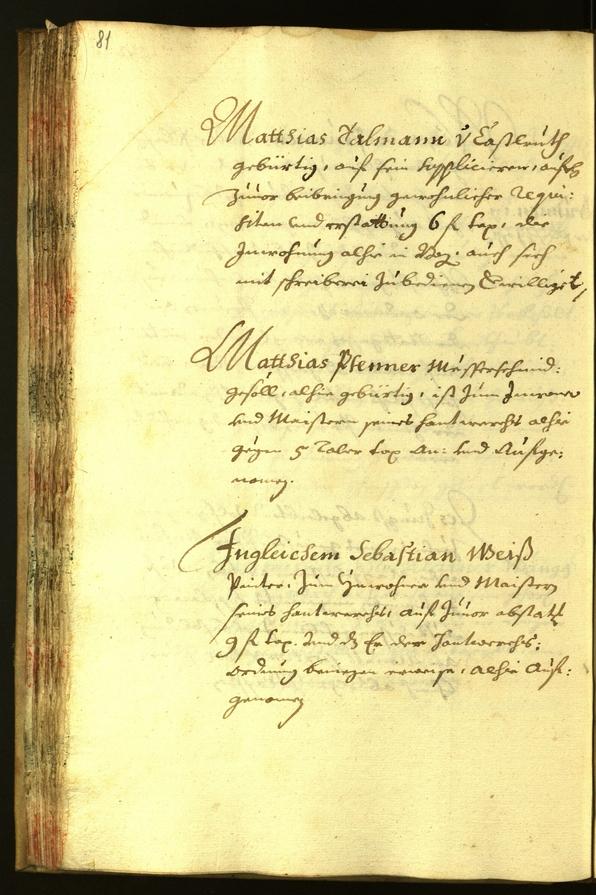 81
Matthias Talmann v̈ Casstlruth
gebürtig, auf sein suppliciern, aufs
zuuor beibringung gewohnlicher requi:
siten und erstattung 6 fl tax, die
Inwohnung alhie in Boz: auch sich
mit schreiberei zu bedienen bewilliget,
Matthias Pfenner Messerschmid:
gesöll, alhie gebürtig, ist zum Inwoner
und Maistern seines hantwerchs alhie
gegen 5 Taler tax an: und Aufge:
nomen.
Ingleichem Sebastian Weiß
Pinter, zum Inwohner und Maistern
seines hantwerchs, auf zuuor abstatt
9 fl tax. und dz Er der Hantwerchs:
ordnung beniegen erweise, alhie Auf:
genomen